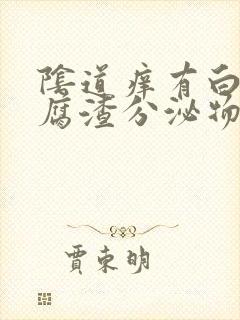 陰道痒有白
腐渣分泌物
賈東明